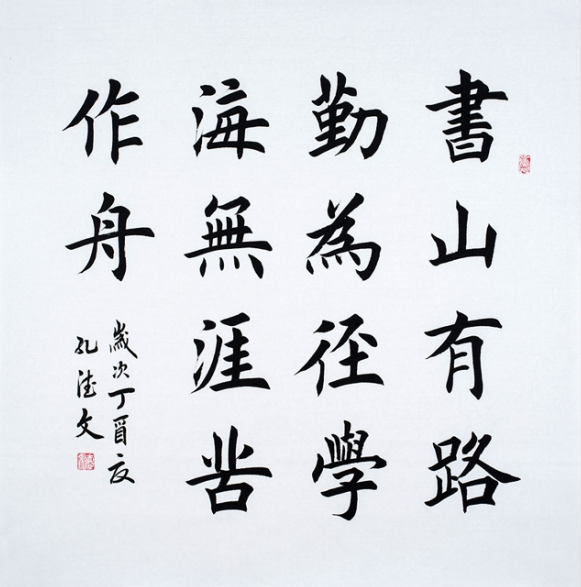 書山有路
勤為徑學
海無涯苦
作舟
歲次丁酉夏
孔德文